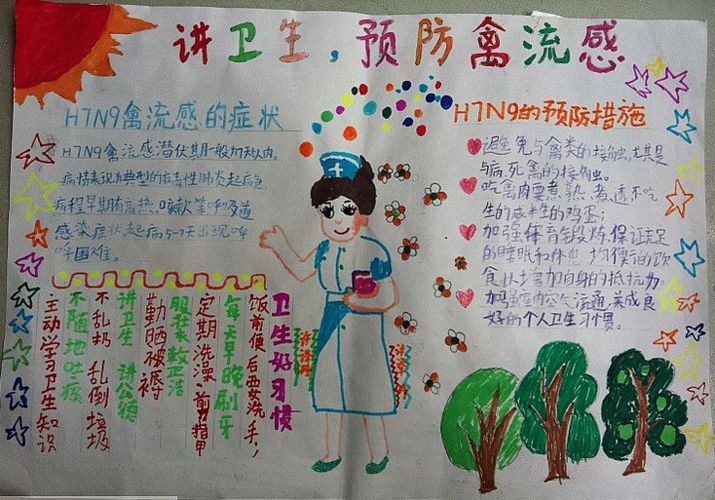 讲卫生，预防禽流感
H7N9禽流感的症状
H7N9禽流感潜伏期一般为7天以内。
病情表现为典型的病毒性肺炎起病急
病程早期有高热、咳嗽等呼吸道
感染症状起病5-7天出现呼
吸困难。
H7N9的预防措施
避免与禽类的接触,尤其是
与病、死禽的接触。
吃禽肉要煮熟、煮透不吃
生的或半生的鸡蛋;
加强体育锻炼,保证充足
的睡眠和休息,均衡的饮
食状增加自身的抵抗力
加强室内空气流通,养成良
好的个人卫生习惯。
卫生好习惯
饭前便后要洗手,
每天早晚刷牙
定期洗澡 剪指甲
服装教正洁
勤晒被褥
讲卫生 讲公德
不乱扔 乱倒垃圾
不随地吐痰
主动学习卫生知识